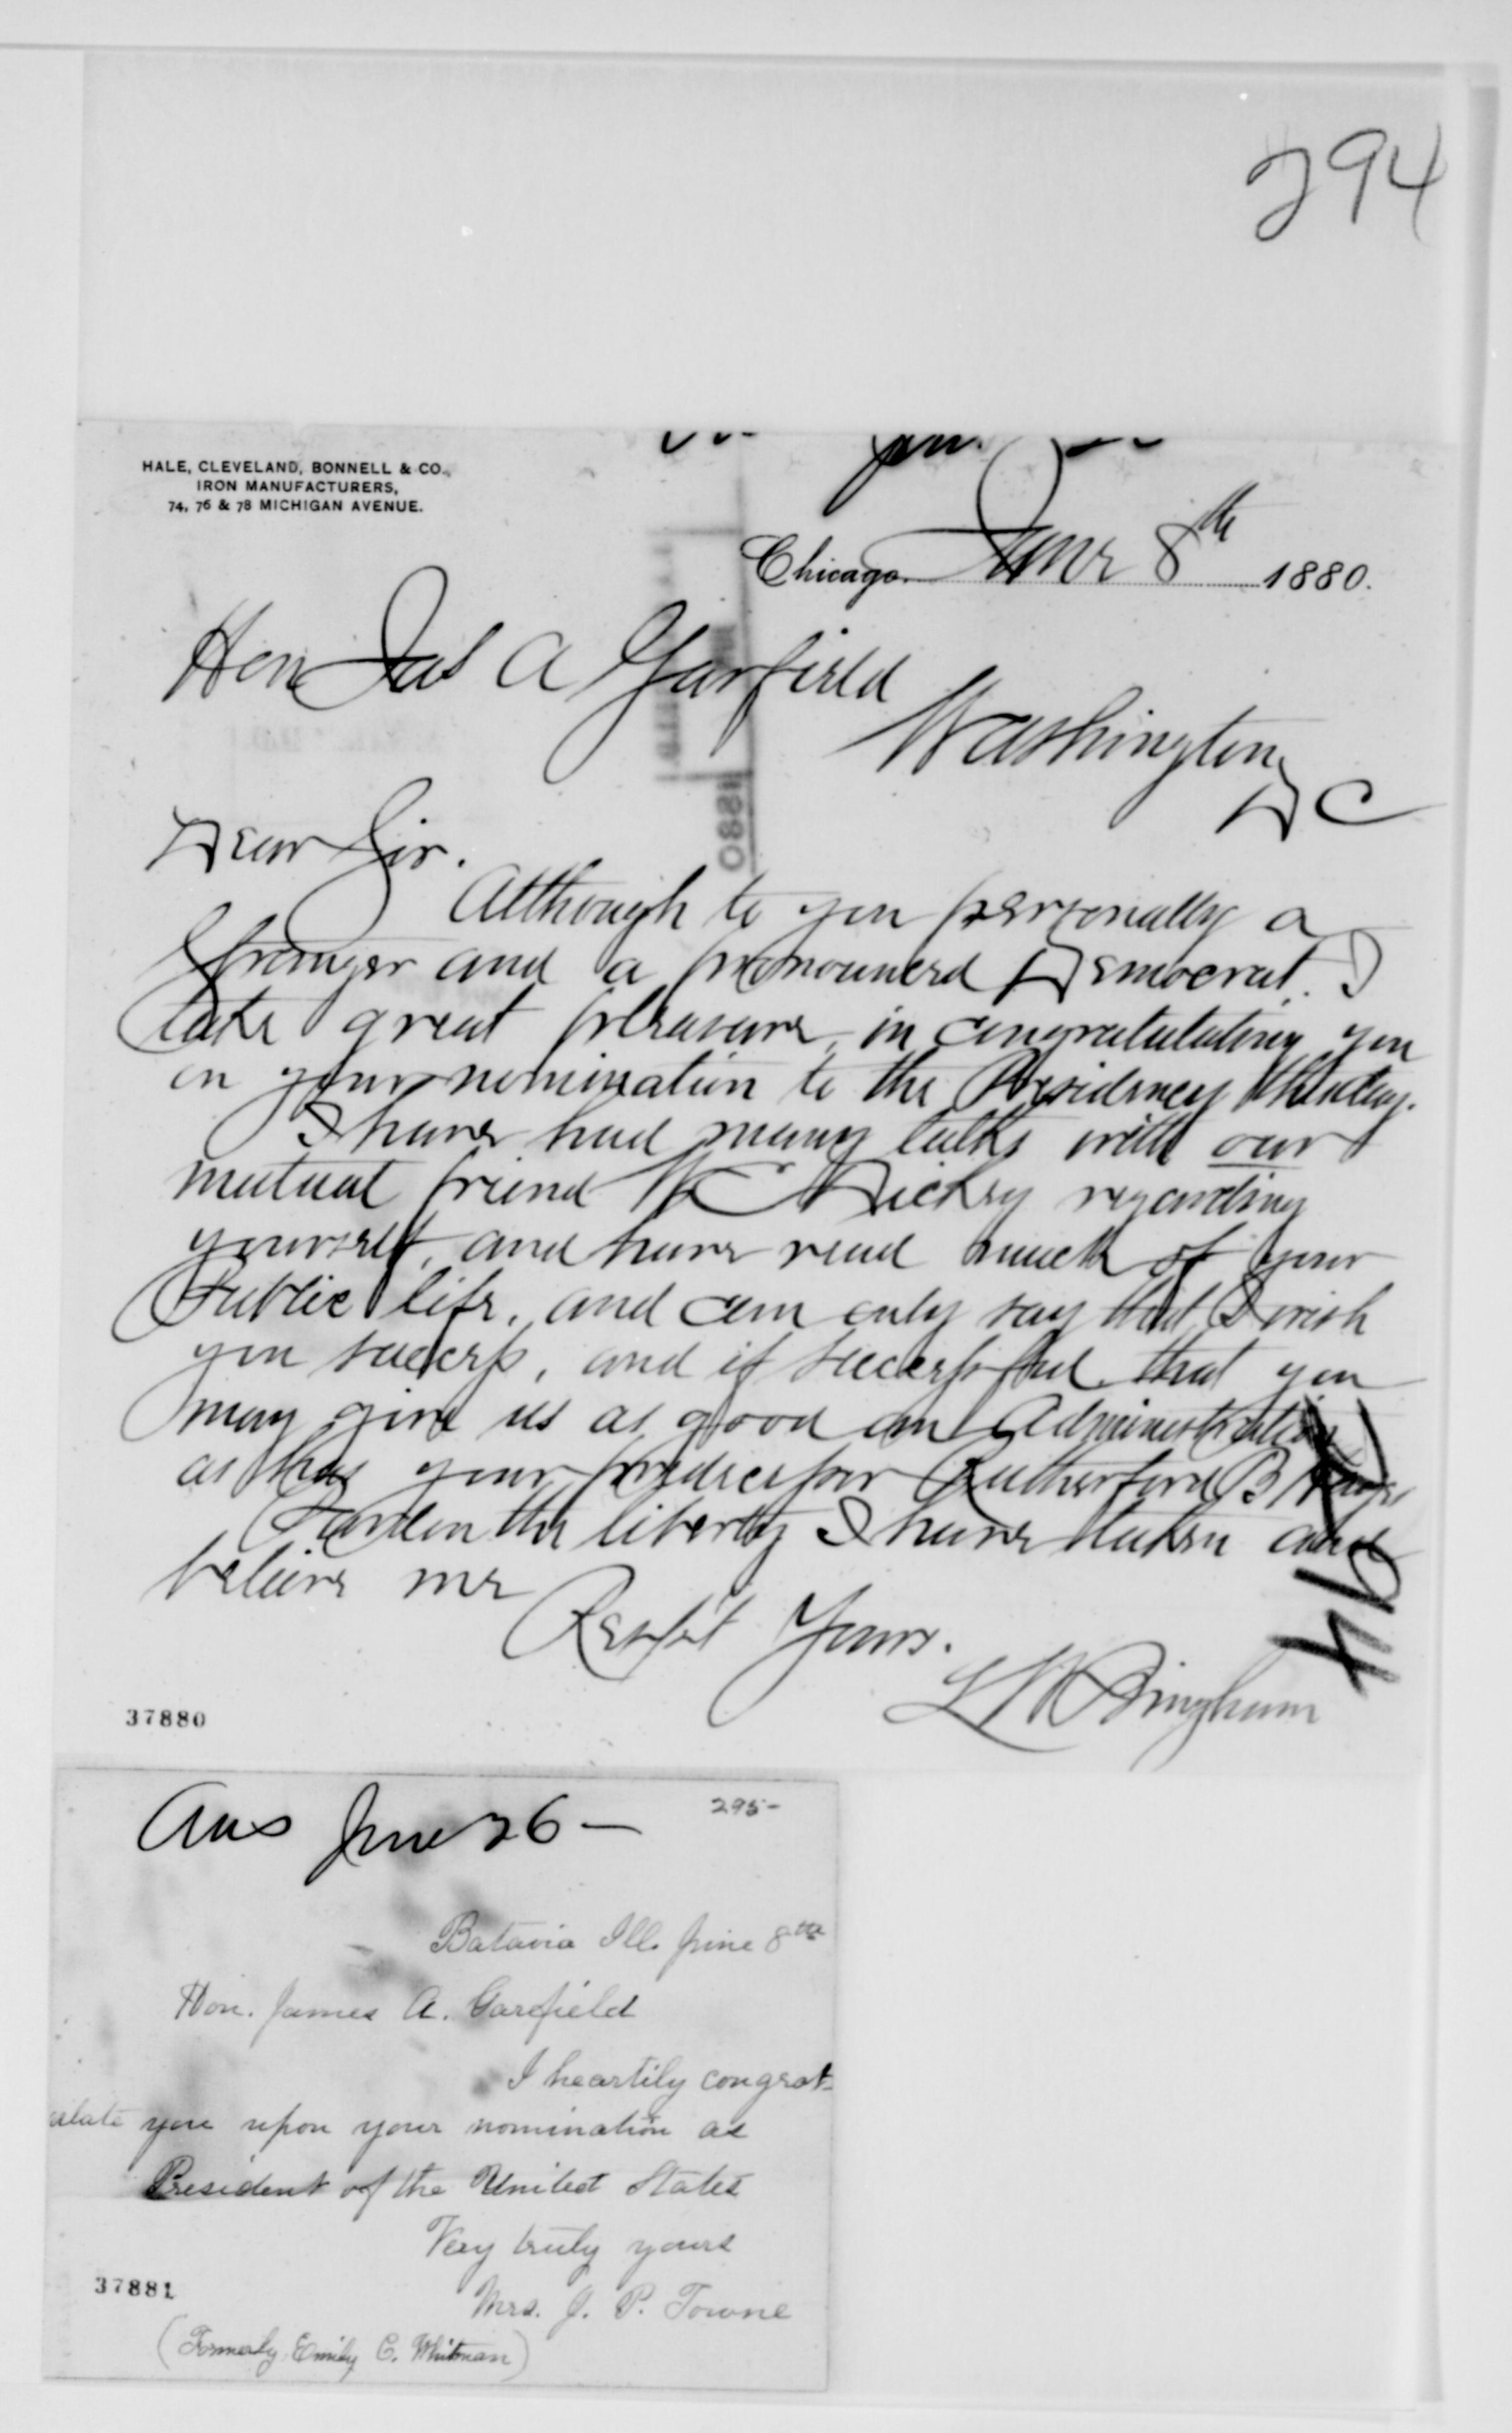 294
HALE, CLEVELAND, BONNELL & CO.,
IRON MANUFACTURERS,
74, 76 & 78 MICHIGAN AVENUE.
Chicago. June 8th 1880.
Hon Jas A Garfield
Washington,
D C
Dear Sir.
Although to you personally a
Stranger and a pronounced Democrat. I
take great pleasure, in congratulating you
on your nomination to the Presidency this day.
I have had many talks with our
mutual friend regarding
yourself, and have read much of your
Public life, and can only say that I wish
you success, and if successful that you
may give us as good an Administration
as has your predecessor Rutherford B Hayes
Pardon the liberty I have taken and
believe me
Respt Yours.
L W Bingham
1880
37880
Ans June 26 —
295-
Batavia Ill. June 8th
Hon. James A. Garfield
I heartily congrat-
ulate you upon your nomination as
President of the United States
Very truly yours
Mrs. J. P. Towne
37881
(Formerly Emily C. Whitman)